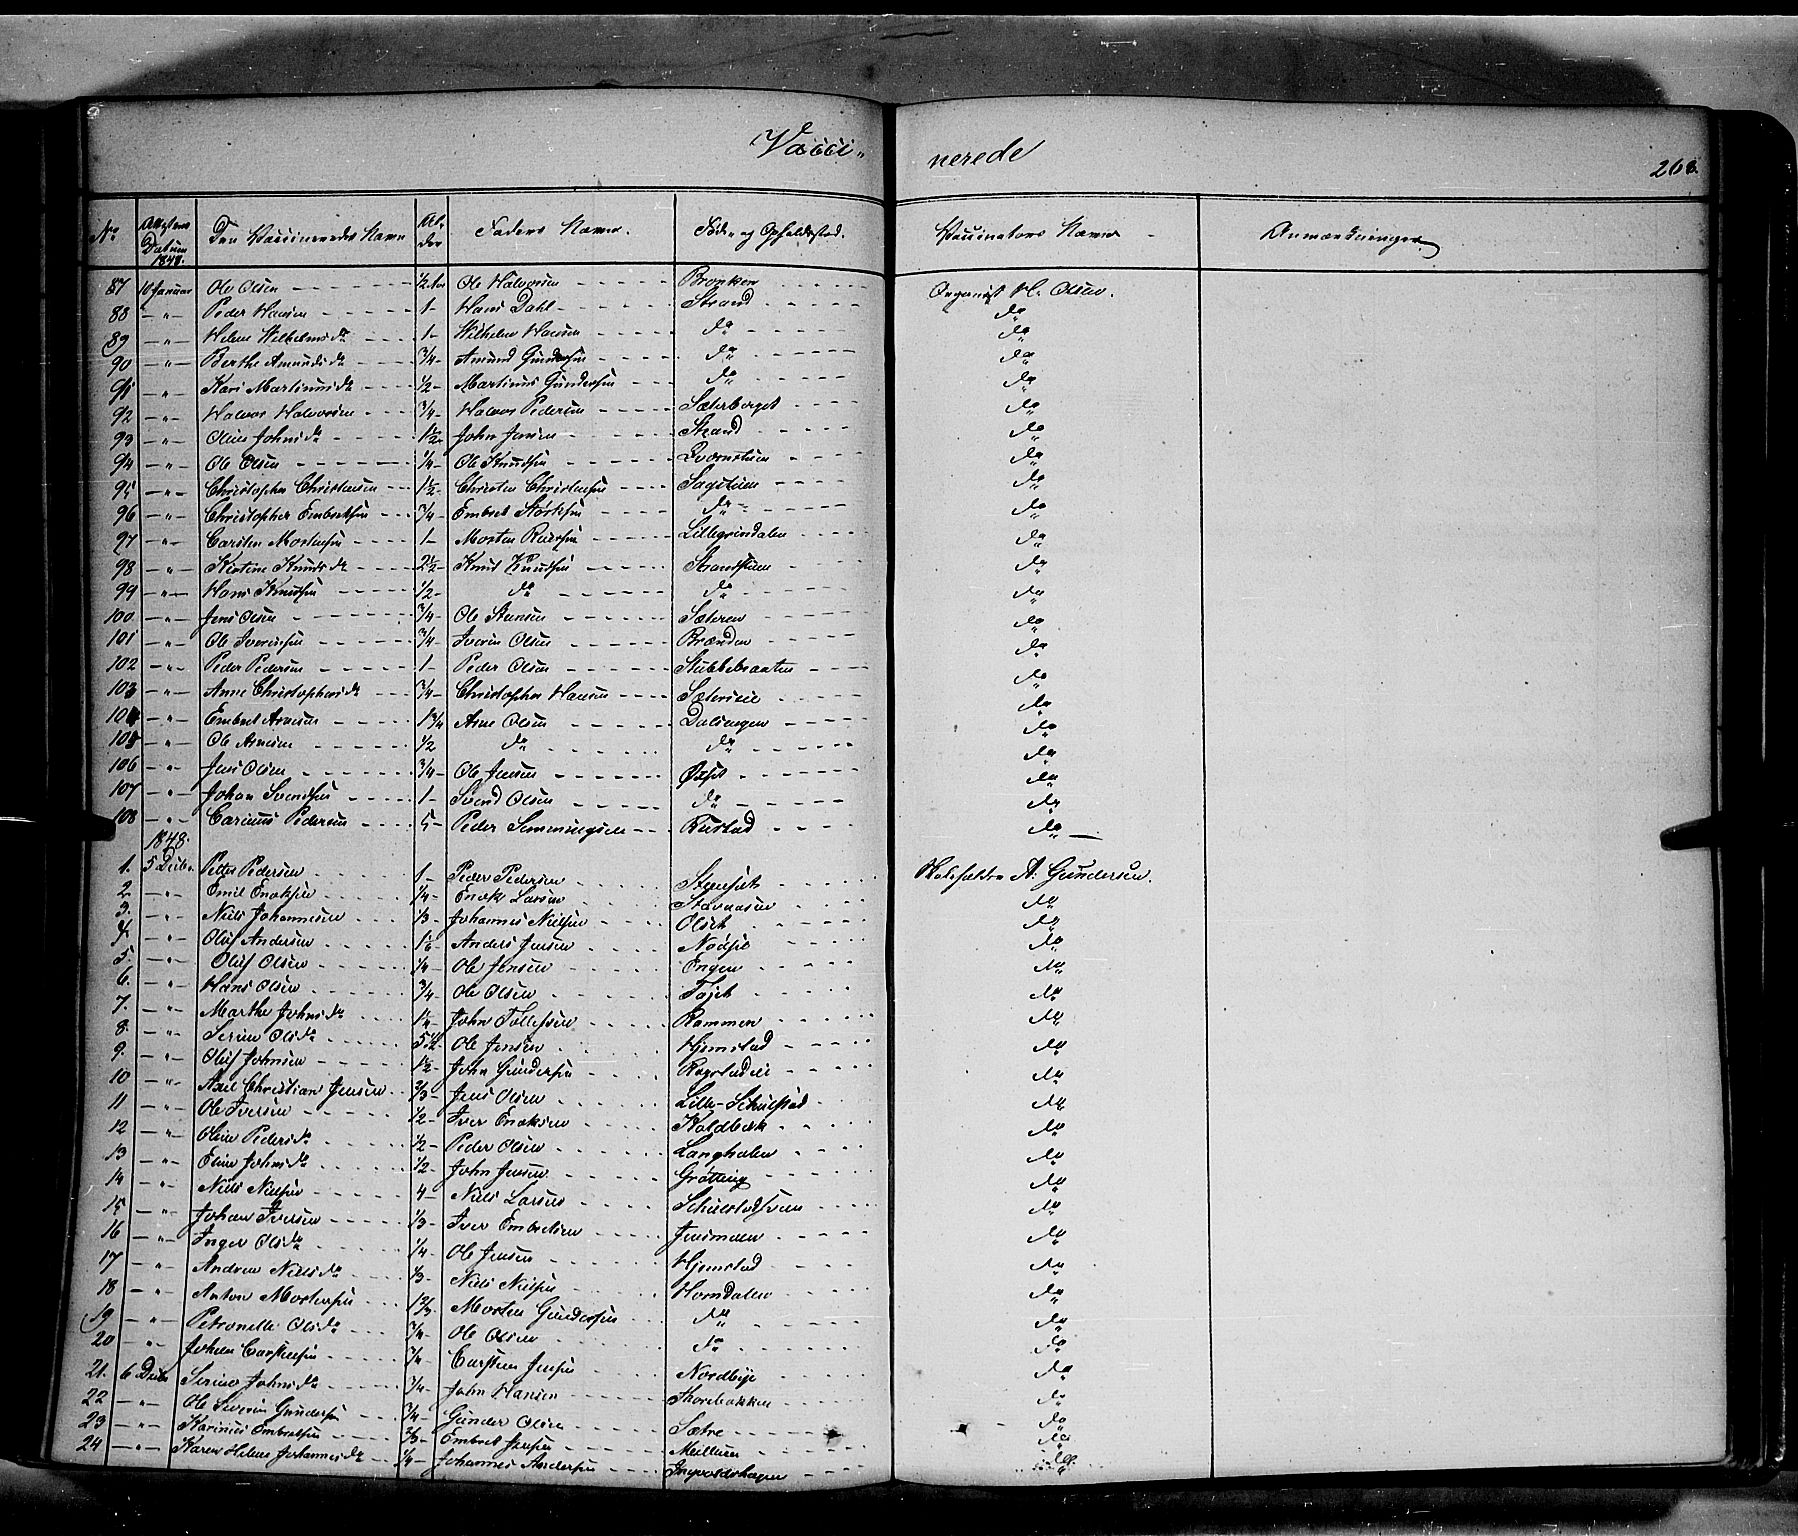 Vacci- nerede
268
No Attestens Datum 1848. Den Vaccineredes Navn Alder Faders Navn. Føde- og Opholdssted. Vaccinateurs Navn Anmærkninger
87 10 Januar Ole Olsen ½ Aar Ole Halvorsen Bronken Organist H. Olsen.
88 — " — Peder Hansen 1 - Hans Dahl Strand do
89 — " — Helene Wilhelmsdr 1 - Wilhelm Hansen do do
90 — " — Berthe Amundsdr ¾ - Amund Gundersen do do
91 — " — Kari Martinusdr ½ - Martinus Gundersen do do
92 — " — Halvor Halvorsen ¾ - Halvor Pedersen Sæterberget do
93 — " — Oline Johnsdr 1½ - John Jensen Strand do
94 — " — Ole Olsen ¼ - Ole Knudsen Qvernstuen do
95 — " — Christopher Christensen 1½ - Christen Christensen Sagstuen do
96 — " — Christopher Embretsen ¾ - Embret Størksen do do
97 — " — Carsten Mortensen 1 - Morten Lillegrindalen do
98 — " — Kirstine Knudsdr 2½ - Knud Knudsen Strandstuen do
99 — " — Hans Knudsen ½ - do do do
100 — " — Jens Olsen ¾ - Ole Steensen Sæteren do
101 — " — Ole Iversen ¾ - Iver Olsen Brænden do
102 — " — Peder Pedersen 1 - Peder Olsen Stubbebraaten do
103 — " — Anne Christophersdr ¾ - Christopher Hansen do
104 — " — Embret Arnesen 1¾ Arne Olsen do
105 — " — Ole Arnesen ½ do do do
106 — " — Jens Olsen ¾ - Ole Jensen do
107 — " — Johan Svendsen 1 - Svend Olsen do do
108 — " — Carinus Pedersen 5 - Peder Simmingsen Rustad do
1848.
1. 5 Decbr Petter Pedersen 1 - Peder Pedersen A. Gundersen.
2. — " — Emil Enoksen ¼ - Enok Larsen do
3. — " — Niels Johannesen ⅓ - Johannes Nielsen Olset do
4. — " — Oluf Andersen Anders Jensen do
5. — " — Oluf Olsen ¼ - Ole Jensen Engen do
6. — " — Hans Olsen ¾ - Ole Olsen do
7. — " — Marthe Johnsdr John Tollefsen Rammen do
8. — " — Serine Olsdr 5½ - Ole Jensen Hjemstad do
9. — " — Oluf Johnsen 1½ - John Gundersen do
10 — " — Axel Christian Jensen ⅔ - Jens Olsen do
11 — " — Ole Iversen ½ - Iver Enoksen Koldbæk do
12 — " — Oline Pedersdr ½ - Peder Olsen Langholen do
13 — " — Eline Johnsdr ½ - John Jensen Grøtting do
14 — " — Niels Nielsen 4 - Niels Larsen do
15 — " — Johan Iversen ⅓ - Iver Embretsen do
16 — " — Inger Olsdr ¼ - Ole Jensen Hjemstad do
17 — " — Andrea Nielsdr ⅓ - Niels Nielsen Horndalen do
18 — " — Anton Mortensen 1⅔ - Morten Gundersen do do
19 — " — Petronelle Olsdr ¾ - Ole Olsen do do
20 — " — Johan Carstensen ¾ - Carsten Jensen Nordbye do
21. 6 Decbr Serine Johnsdr ¾ - John Hansen do
22 — " — Ole Severin Gundersen ¾ - Gunder Olsen Sætre do
23 — " — Karinus Embretsen ⅔ - Embret Jensen do
24 — " — Karen Helene Johannesdr ¼ - Johannes Andersen do